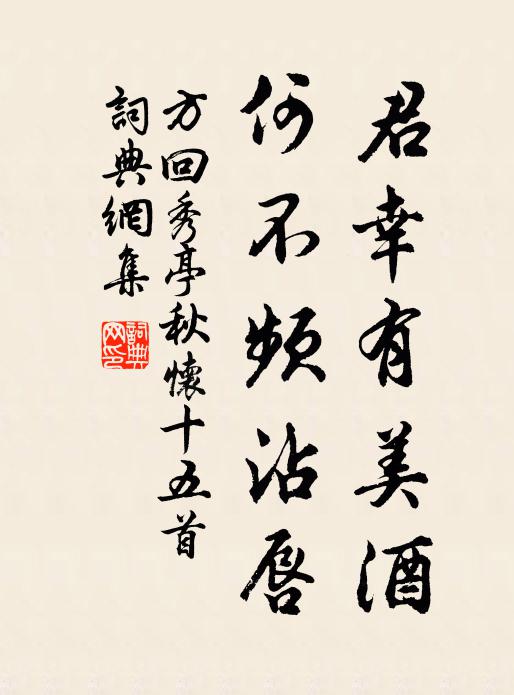 君幸有美酒
何不頻沾唇
方回秀亭秋懷十五首
詞典網集
詞典網印